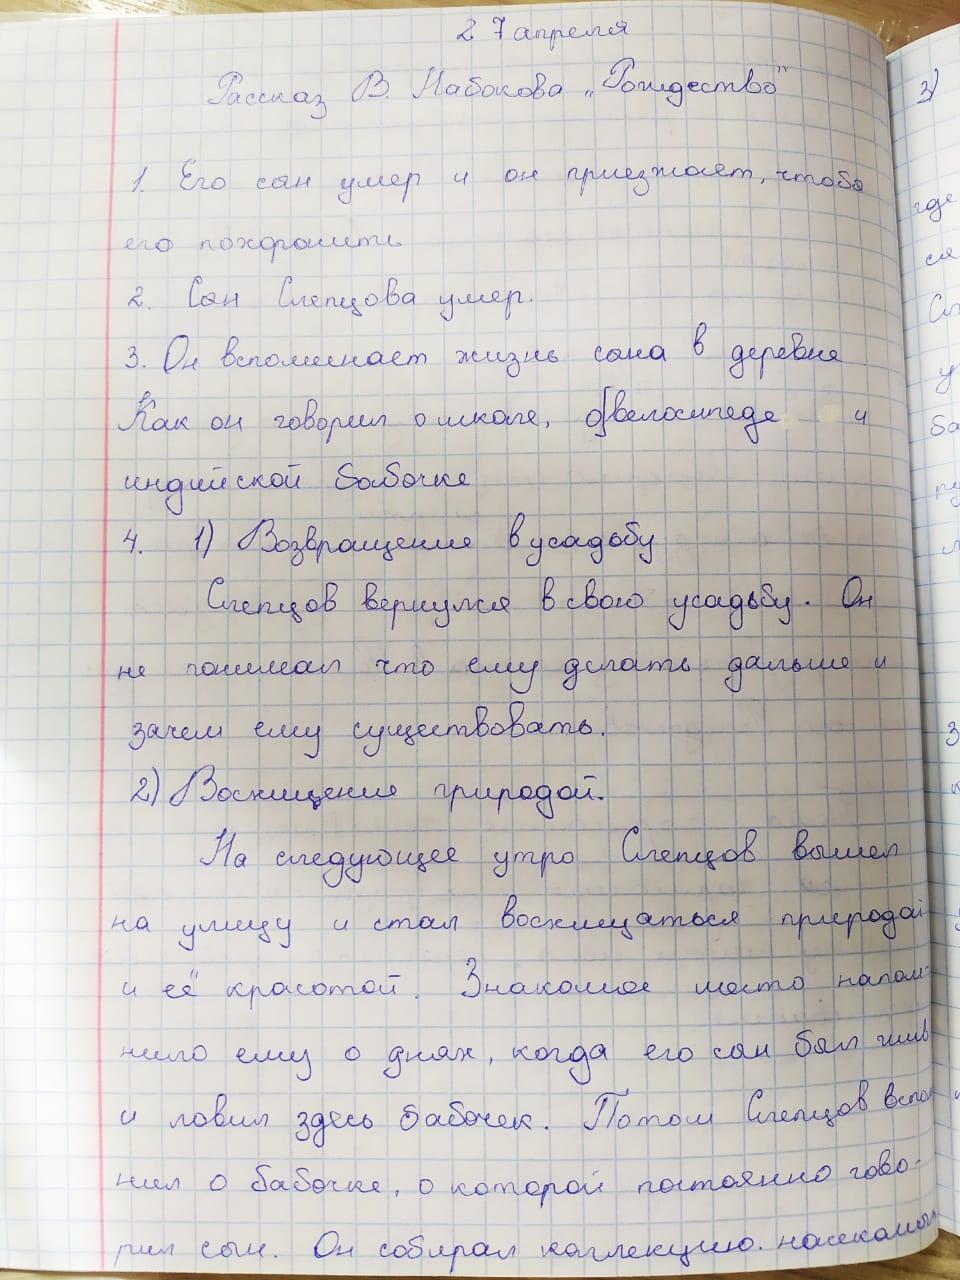 27 апреля
Рассказ В. Набокова „Рождество"
1. Его сын умер и он приезжает, чтобы
его похоронить
2. Сын Слепцова умер.
3. Он вспоминает жизнь сына в деревне
Как он говорил о школе, о велосипеде и
индийской бабочке
4. 1) Возвращение в усадьбу
Слепцов вернулся в свою усадьбу. Он
не понимал что ему делать дальше и
зачем ему существовать.
2) Восхищение природой.
На следующее утро Слепцов вышел
на улицу и стал восхищаться природой
и её красотой. Знакомое место напом-
нило ему о днях, когда его сын был жив
и ловил здесь бабочек. Потом Слепцов вспом
нил о бабочке, о которой постоянно гово-
рил сын. Он собирал коллекцию насекомых
3)
где